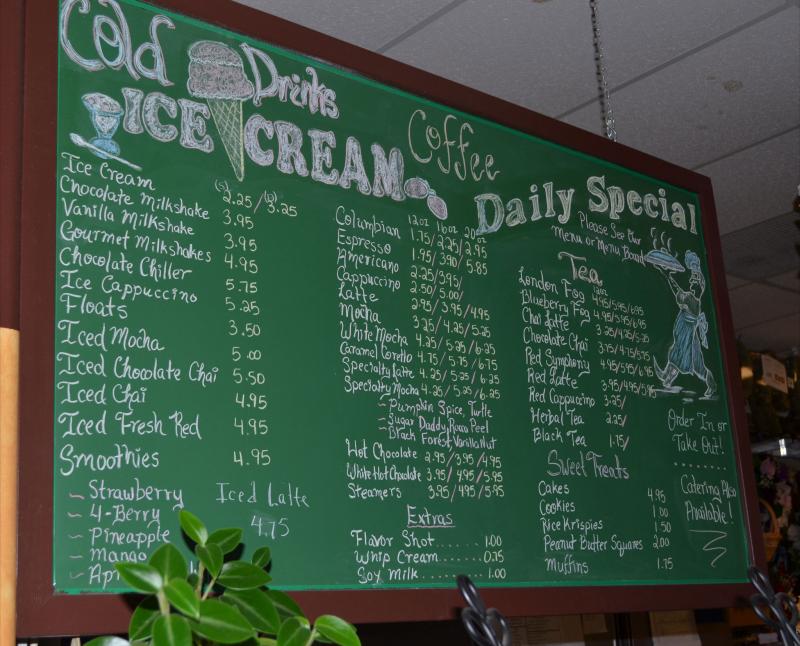 Cold Drinks
ICE CREAM
Ice Cream (s) 2.25/ (b) 3.25
Chocolate Milkshake 3.95
Vanilla Milkshake 3.95
Gourmet Milkshakes 4.95
Chocolate Chiller 5.75
Ice Cappuccino 5.25
Floats 3.50
Iced Mocha 5.00
Iced Chocolate Chai 5.50
Iced Chai 4.95
Iced Fresh Red 4.95
Smoothies 4.95
~ Strawberry
~ 4-Berry
~ Pineapple
~ Mango
Iced Latte
4.75
Coffee
12oz 16oz 20oz
Columbian 1.75/2.25/2.95
Espresso 1.95/3.90/5.85
Americano 2.25/3.95/
Cappuccino 2.50/5.00/
Latte 2.95/3.95/4.95
Mocha 3.25/4.25/5.25
White Mocha 4.25/5.25/6.25
Caramel Coretto 4.75/5.75/6.75
Specialty Latte 4.25/5.25/6.25
Specialty Mocha 4.25/5.25/6.25
~ Pumpkin Spice, Turtle
~ Sugar Daddy, Rocca Peel
~ Black Forest, Vanilla Nut
Hot Chocolate 2.95/3.95/4.95
White Hot Chocolate 3.95/4.95/5.95
Steamers 3.95/4.95/5.95
Extras
Flavor Shot........ 1.00
Whip Cream........ 0.75
Soy Milk........ 1.00
Daily Special
Please See Our
Menu or Menu Board
Tea
London Fog 4.95/5.95/6.95
Blueberry Fog 4.95/5.95/6.95
Chai Latte 3.25/4.25/5.25
Chocolate Chai 3.75/4.75/5.75
Red Symphony 4.95/5.95/6.95
Red Latte 3.95/4.95/5.95
Red Cappuccino 3.25/
Herbal Tea 2.25/
Black Tea 1.75/
Sweet Treats
Cakes 4.95
Cookies 1.00
Rice Krispies 1.50
Peanut Butter Squares 2.00
Muffins 1.75
Order In or
Take Out!
Catering Also
Available!